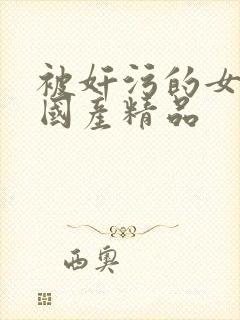 被奸污的女
國產精品
西奥